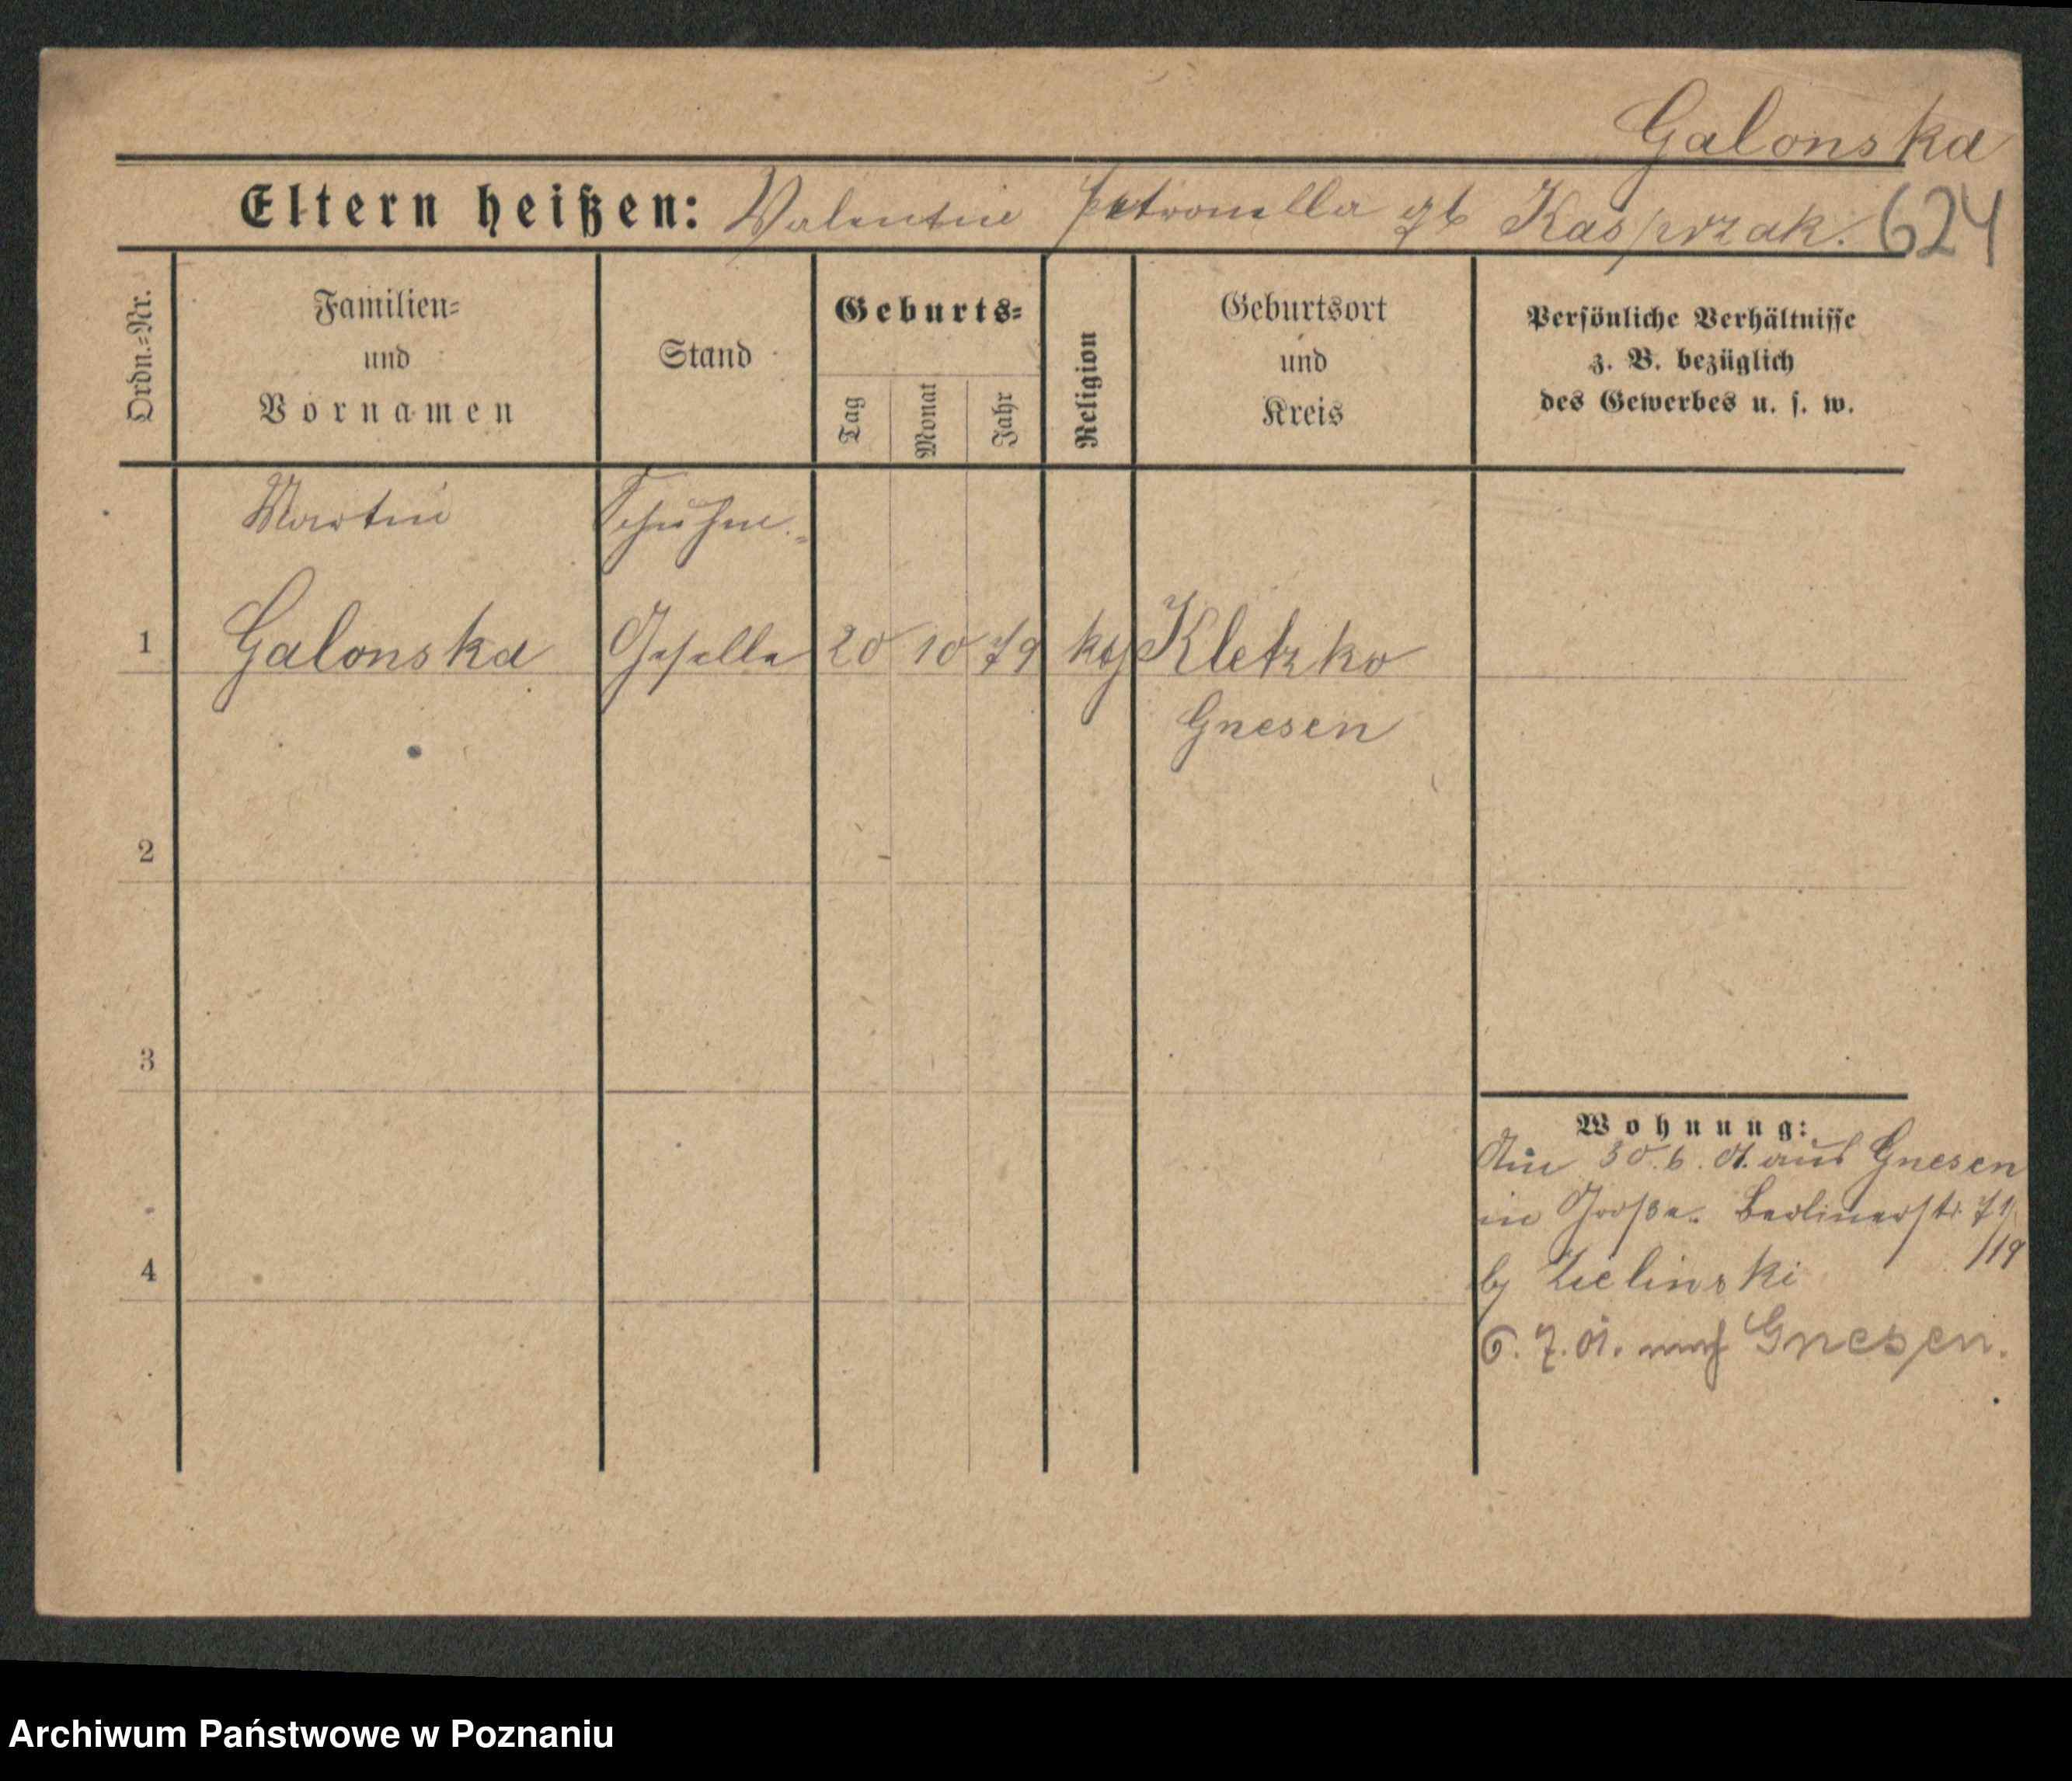 Galonska
Eltern heißen: Valentin Petronella gb Kasprzak. 624
Ordn.-Nr.
Familien-
und
Vornamen
Stand
Geburts-
Tag
Monat
Jahr
Religion
Geburtsort
und
Kreis
Persönliche Verhältnisse
z. B. bezüglich
des Gewerbes u. s. w.
Martin Schuhm.-
1 Galonska Geselle 20 10 79 kth Kletzko
Gnesen
2
3
4
Wohnung:
Am 30.6.01. aus Gnesen
in Große Berlinerstr. 71
/19
by Zielinski
6. 7. 01. nach Gnesen.
Archiwum Państwowe w Poznaniu